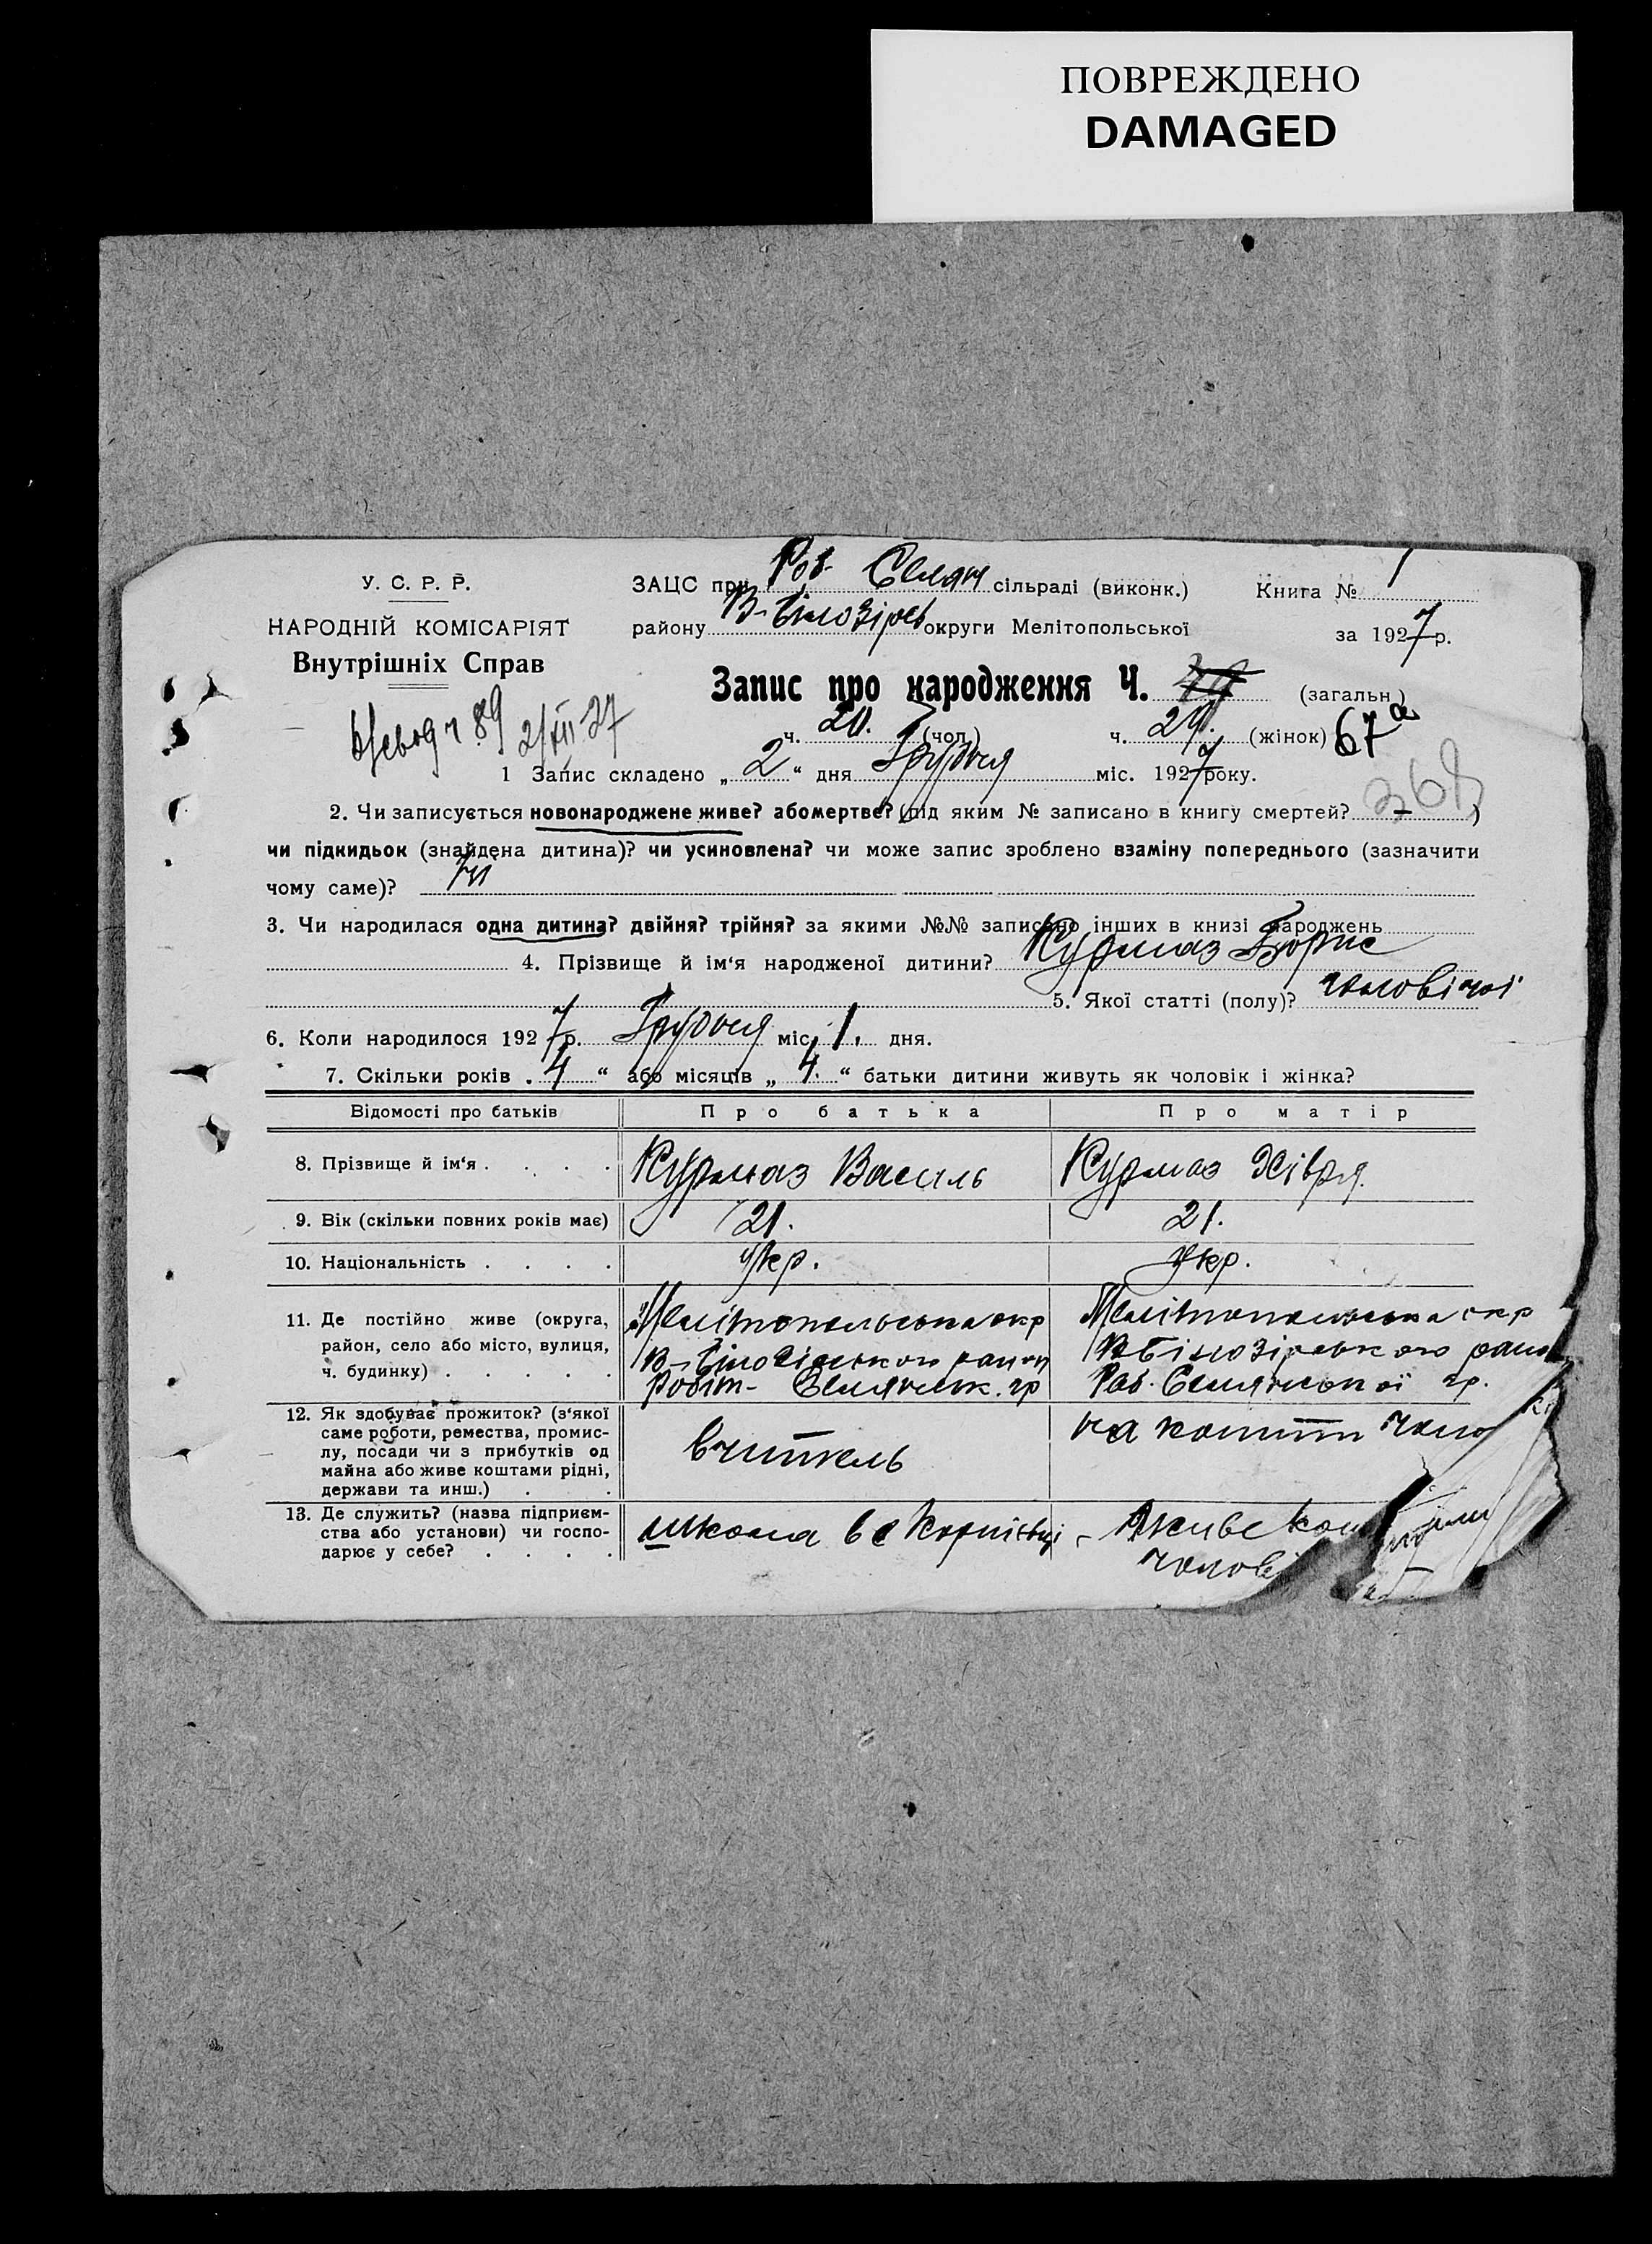 ПОВРЕЖДЕНО
DAMAGED
У. С. Р. Р.
НАРОДНІЙ КОМІСАРІЯТ
Внутрішніх Справ
ЗАЦС при Роб. Селян сільраді (виконк.) Книга № 1
району В-Білозірсь округи Мелітопольської за 1927 р.
Запис про народження Ч. (загальн.)
ч. 20. (чол.) ч. (жінок) 67а
ч 89 2/XII 27
1 Запис складено „2“ дня Грудня міс. 1927 року.
2. Чи записується новонароджене живе? абомертве? (під яким № записано в книгу смертей? - )
чи підкидьок (знайдена дитина)? чи усиновлена? чи може запис зроблено взаміну попереднього (зазначити
чому саме)? ні
3. Чи народилася одна дитина? двійня? трійня? за якими №№ записано інших в книзі народжень
4. Прізвище й ім‘я народженої дитини? Курмаз Борис
5. Якої статті (полу)? чоловічої
6. Коли народилося 1927 р. Грудня міс. 1. дня.
7. Скільки років „4“ або місяців „4.“ батьки дитини живуть як чоловік і жінка?
Відомості про батьків Про батька Про матір
8. Прізвище й ім‘я . . . . Курмаз Василь Курмаз Хівря.
9. Вік (скільки повних років має) 21. 21.
10. Національність . . . . укр. Укр.
11. Де постійно живе (округа, Мелітопольська окр Мелітопольська окр
район, село або місто, вулиця, В-Білозірського район В Білозірського
ч. будинку) . . . . . Робіт- Селянськ. гр Роб. Селянської гр.
12. Як здобуває прожиток? (з‘якої
саме роботи, ремества, промис-
лу, посади чи з прибутків од
майна або живе коштами рідні,
держави та инш.) . .
вчитель на кошти
13. Де служить? (назва підприєм-
ства або установи) чи госпо-
дарює у себе? . . . .
школа в с - Живе